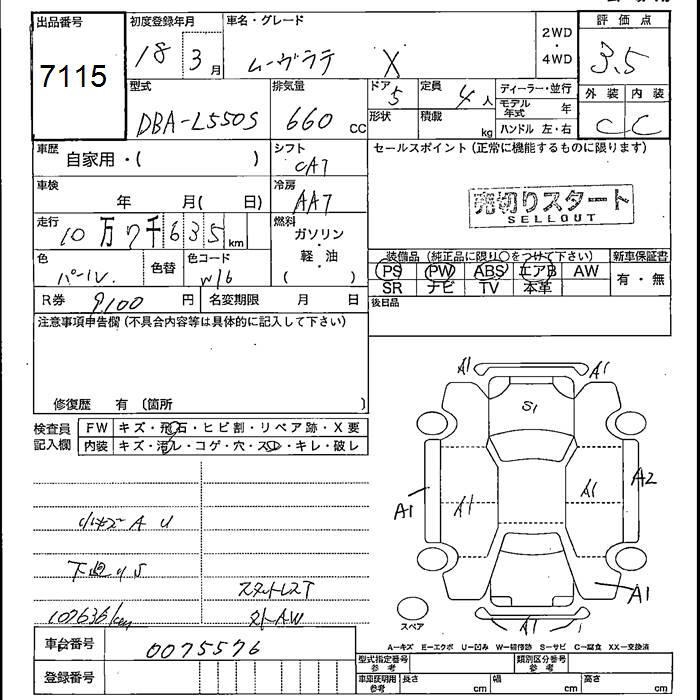 出品番号
7115
初度登録年月
18 3 月
車名・グレード
ムーヴラテ X
2WD
・
4WD
評価点
3.5
外装 内装
C C
型式
DBA-L550S
排気量
660 cc
ドア
5
形状
定員
4 人
積載
kg
ディーラー・並行
モデル年式 年
ハンドル 左・右
車歴 自家用・( )
シフト
CAT
セールスポイント(正常に機能するものに限ります)
売切りスタート
SELLOUT
車検
年 月( 日)
冷房
AAT
走行
10万7千635 km
燃料
ガソリン
・
軽・油
( )
色
パール
色替
色コード
W16
R券 9,100 円
名変期限 月 日
装備品(純正品に限り○をつけて下さい)
PS PW ABS エアB AW
SR ナビ TV 本革
新車保証書
有・無
後日品
注意事項申告欄(不具合内容等は具体的に記入して下さい)
修復歴 有(箇所 )
検査員
記入欄
FW キズ・飛石・ヒビ割・リペア跡・X要
内装 キズ・汚レ・コゲ・穴・スレ・キレ・破レ
小キズ A U
下廻りS
107636km
スタットレスT
社外AW
A1 A1
S1
A1 A1 A1 A2
A1
A1
スペア
A-キズ E-エクボ U-凹み W-補修跡 S-サビ C-腐食 XX-交換済
車台番号
0075576
登録番号
型式指定番号
参考
類別区分番号
参考
車庫証明用
参考
長さ cm
幅 cm
高さ cm